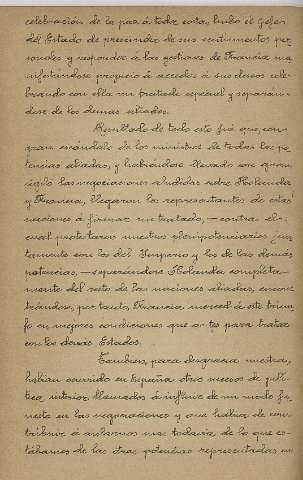 celebración de la paz á toda costa, hubo el Gefe
del Estado de prescindir de sus sentimientos per
sonales y responder á las gestiones de Francia ma
nifestándose propicio á acceder á sus deseos cele
brando con ella un tratado especial y separan-
dose de los demas aliados.
Resultado de todo esto fué que, con
gran escándalo de los ministros de todas las po
tencias aliadas, y habiéndose llevado con gran
sigilo las negociaciones aludidas entre Holanda
y Francia, llegaron los representantes de estas
naciones á firmar un tratado, — contra el
cual protestaron nuestros plenipotenciarios jun
tamente con los del Imperio y los de las demás
potencias, — separándose Holanda completa-
mente del resto de las naciones aliadas, encon
trándose, por tanto, Francia merced á este triun
fo en mejores condiciones que antes para tratar
con los demás Estados.
Tambien, para desgracia nuestra,
habian ocurrido en España otros sucesos de polí
tica interior llamados á influir de un modo fu
nesto en las negociaciones y que habian de con
tribuir á aislarnos mas todavía de lo que es-
tábamos de las otras potencias representadas en